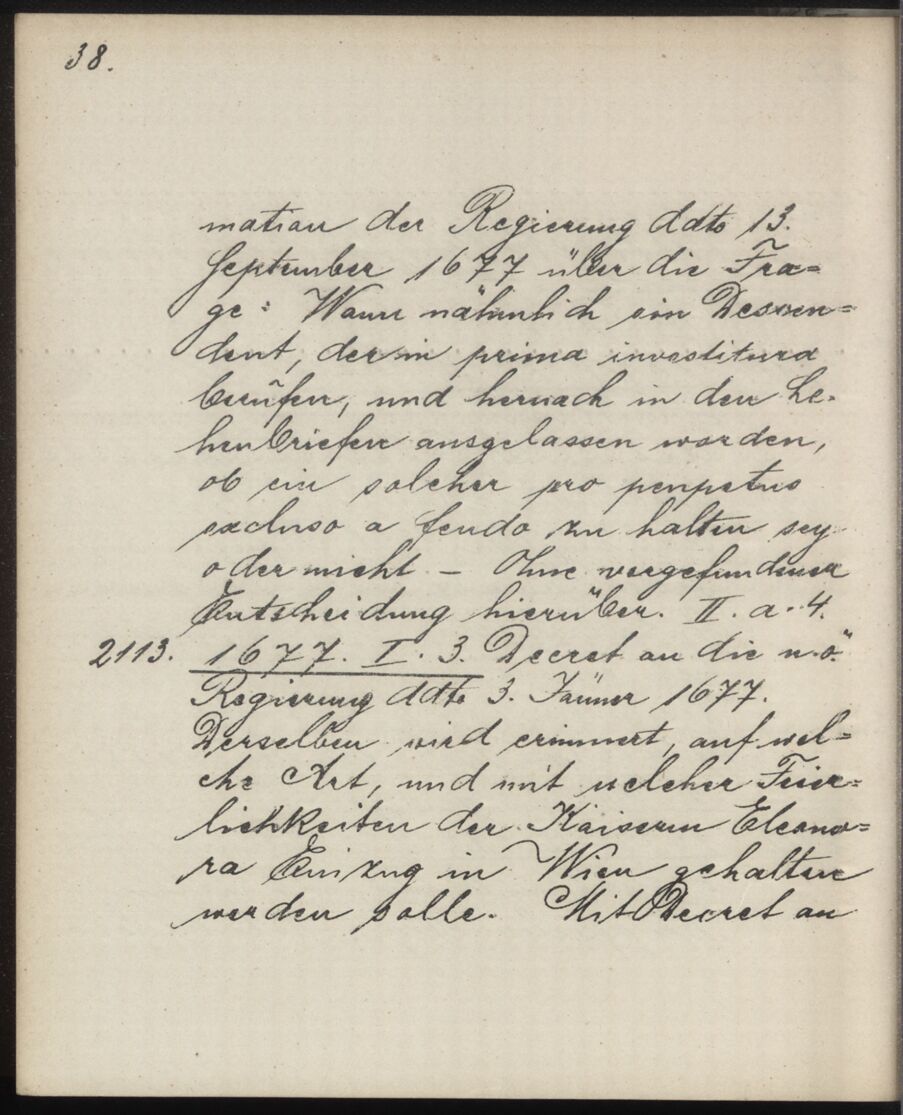 38.
mation der Regierung ddto 13.
September 1677 über die Fra=
ge: Wann nähmlich ein Descen=
dent, der in prima investitura
berufen, und hernach in den Le-
henbriefen ausgelassen worden,
ob ein solcher pro perpetuo
excluso a feudo zu halten sey
oder nicht – Ohne vorgefundener
Entscheidung hierüber. II. a. 4.
2113. 1677. I. 3. Decret an die n.ö.
Regierung ddto 3. Jänner 1677.
Derselben wird erinnert, auf wel=
che Art, und mit welcher Feier=
lichkeiten der Kaiserin Eleono=
ra Einzug in Wien gehalten
werden solle. Mit Decret an